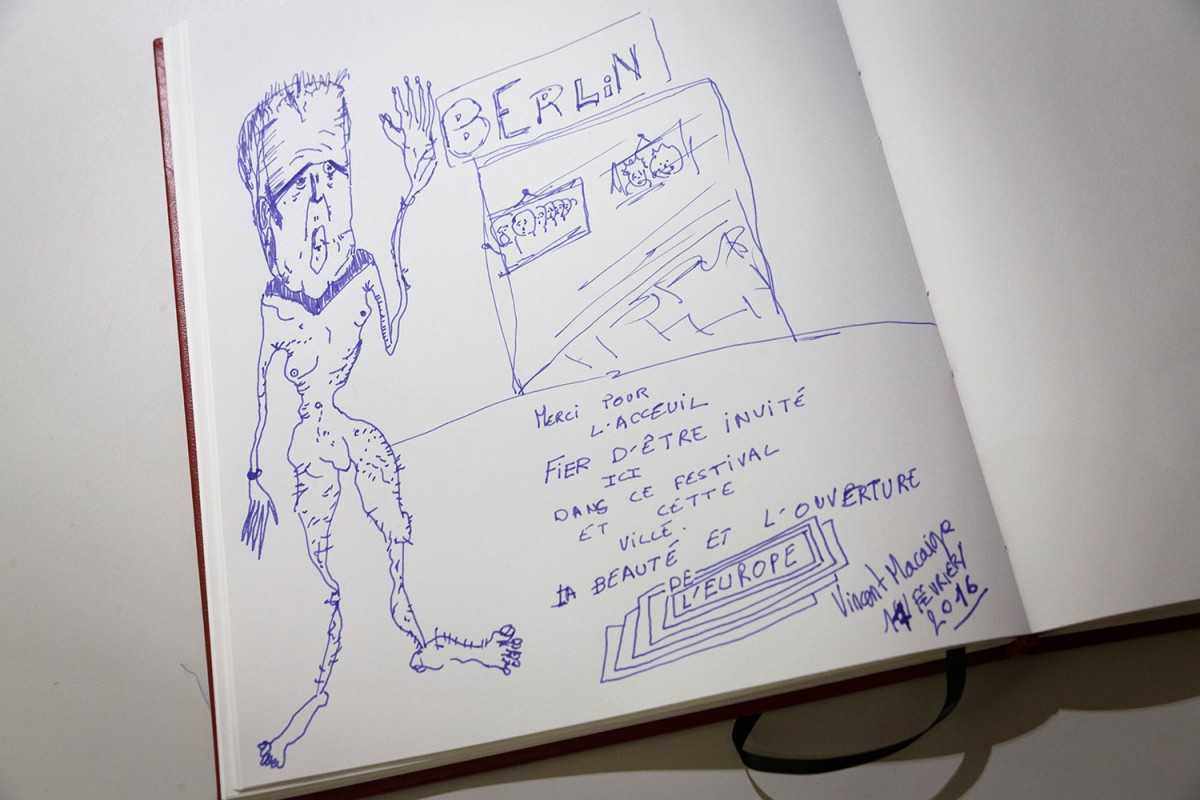 BERLiN
MERCi POUR
L'ACCEUIL
FiER D'ÊTRE iNViTÉ
ICI
DANS CE FESTiVAL
ET CETTE
ViLLE.
LA BEAUTÉ ET L'OUVERTURE
DE
L'EUROPE
Vincent Macaigne
FÉVRIER
2016